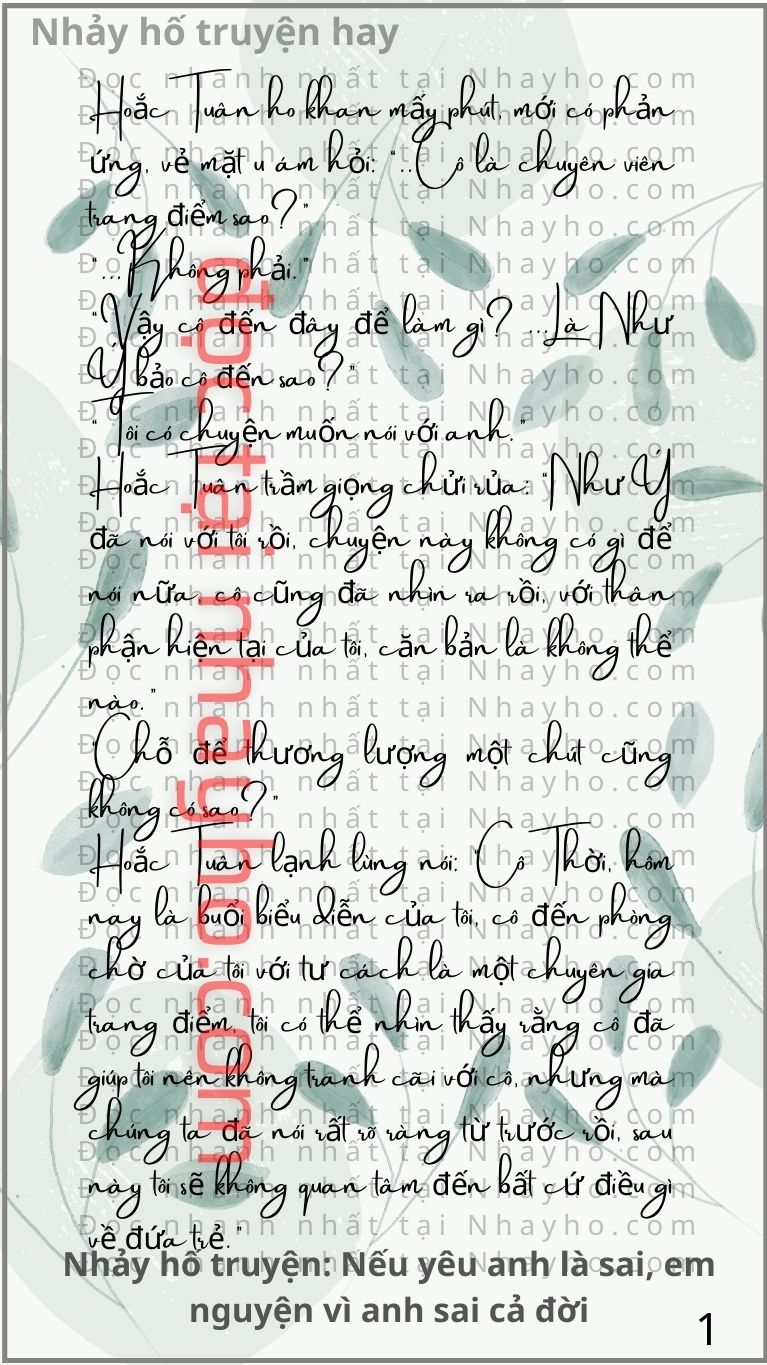 Nhảy hố truyện hay
Hoắc Tuân ho khan mấy phút, mới có phản
ứng, vẻ mặt u ám hỏi: “...Cô là chuyên viên
trang điểm sao?”
“...Không phải.”
“Vậy cô đến đây để làm gì? ...Là Như
Ý bảo cô đến sao?”
“Tôi có chuyện muốn nói với anh.”
Hoắc Tuân trầm giọng chửi rủa: “Như Ý
đã nói với tôi rồi, chuyện này không có gì để
nói nữa, cô cũng đã nhìn ra rồi, với thân
phận hiện tại của tôi, căn bản là không thể
nào.”
“Chỗ để thương lượng một chút cũng
không có sao?”
Hoắc Tuân lạnh lùng nói: “Cô Thời, hôm
nay là buổi biểu diễn của tôi, cô đến phòng
chờ của tôi với tư cách là một chuyên gia
trang điểm, tôi có thể nhìn thấy rằng cô đã
giúp tôi nên không tranh cãi với cô, nhưng mà
chúng ta đã nói rất rõ ràng từ trước rồi, sau
này tôi sẽ không quan tâm đến bất cứ điều gì
về đứa trẻ.”
đọc tại nhayho.com
Đọc nhanh nhất tại Nhayho.com
Nhảy hố truyện: Nếu yêu anh là sai, em
nguyện vì anh sai cả đời
1